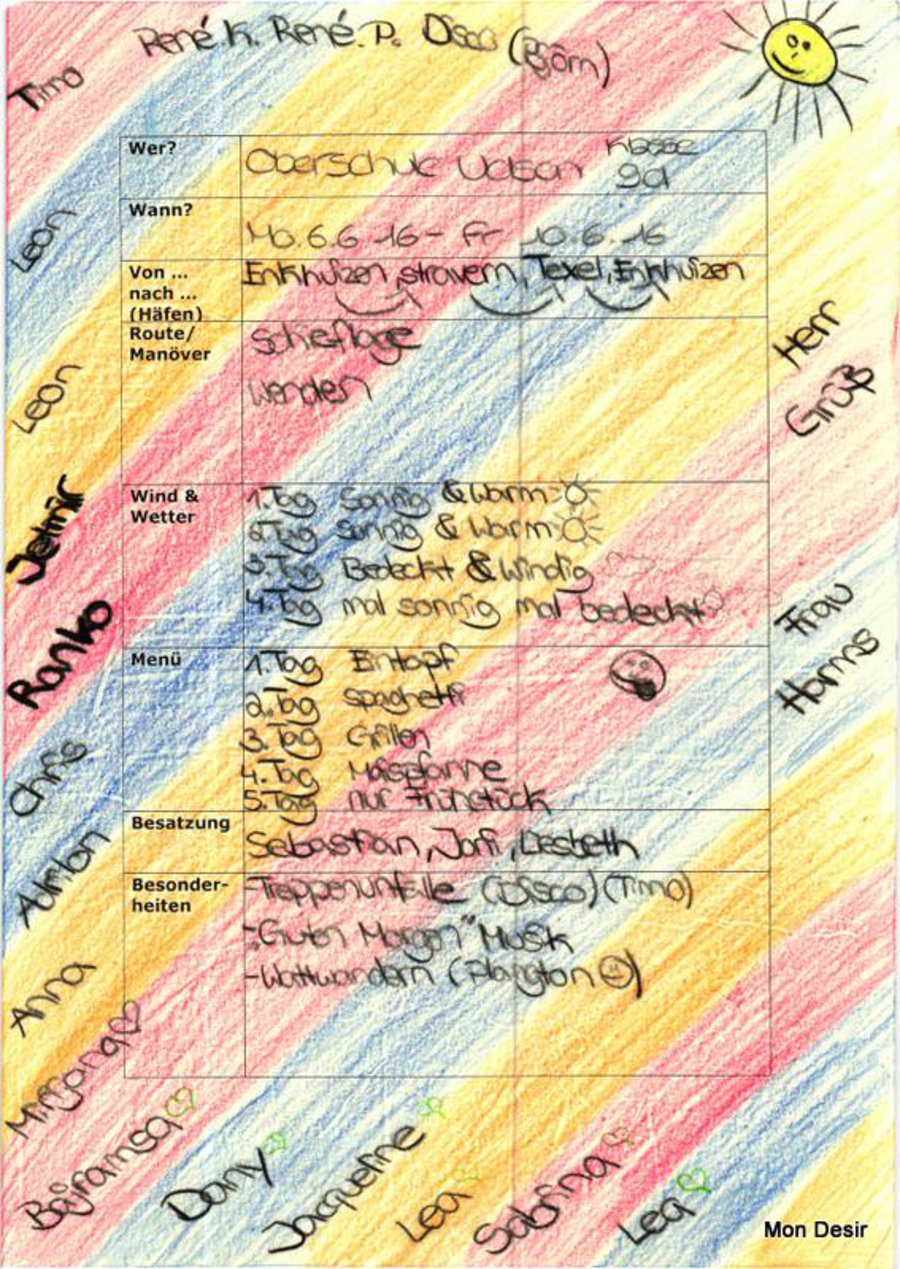 René K. René. P. Disco (Björn)
Timo
Leon
Leon
Jetmir
Ranko
Chris
Adrian
Anna
Mirjana
Bajramsa
Dany
Jacqueline
Lea
Sabrina
Lea
Herr
Grüß
Frau
Harms
Wer?
Oberschule Uelsen Klasse
9a
Wann?
Mo. 6.6-16 - Fr 10.6.-16
Von ...
nach ...
(Häfen)
Enkhuizen, stravern, Texel, Enkhuizen
Route/
Manöver
Schieflage
Wenden
Wind &
Wetter
1. Tag Sonnig & Warm
2. Tag Sonnig & Warm
3. Tag Bedeckt & Windig
4. Tag mal sonnig mal bedeckt
Menü
1. Tag Eintopf
2. Tag spaghetti
3. Tag Grillen
4. Tag Maispfanne
5. Tag nur Frühstück
Besatzung
Sebastian, Liesbeth
Besonder-
heiten
-Treppenunfälle (Disco) (Timo)
-„Guten Morgen" Musik
-Wattwandern (Plangton)
Mon Desir